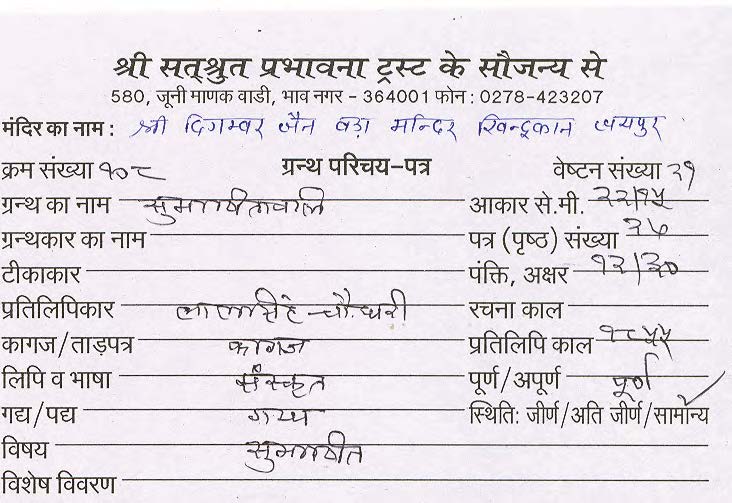 श्री सत्श्रुत प्रभावना ट्रस्ट के सौजन्य से
580, जूनी माणक वाडी, भाव नगर - 364001 फोन : 0278-423207
मंदिर का नाम : श्री दिगम्बर जैन बड़ा मन्दिर जयपुर
क्रम संख्या १०८ ग्रन्थ परिचय-पत्र वेष्टन संख्या २१
ग्रन्थ का नाम सुभाषीतावलि आकार से.मी. २२/१५
ग्रन्थकार का नाम पत्र (पृष्ठ) संख्या
टीकाकार पंक्ति, अक्षर १२/३०
प्रतिलिपिकार लालसिंह चौधरी रचना काल
कागज/ताड़पत्र कागज प्रतिलिपि काल १८५५
लिपि व भाषा संस्कृत पूर्ण/अपूर्ण पूर्ण
गद्य/पद्य स्थिति: जीर्ण/अति जीर्ण/सामान्य
विषय सुभाषीत
विशेष विवरण